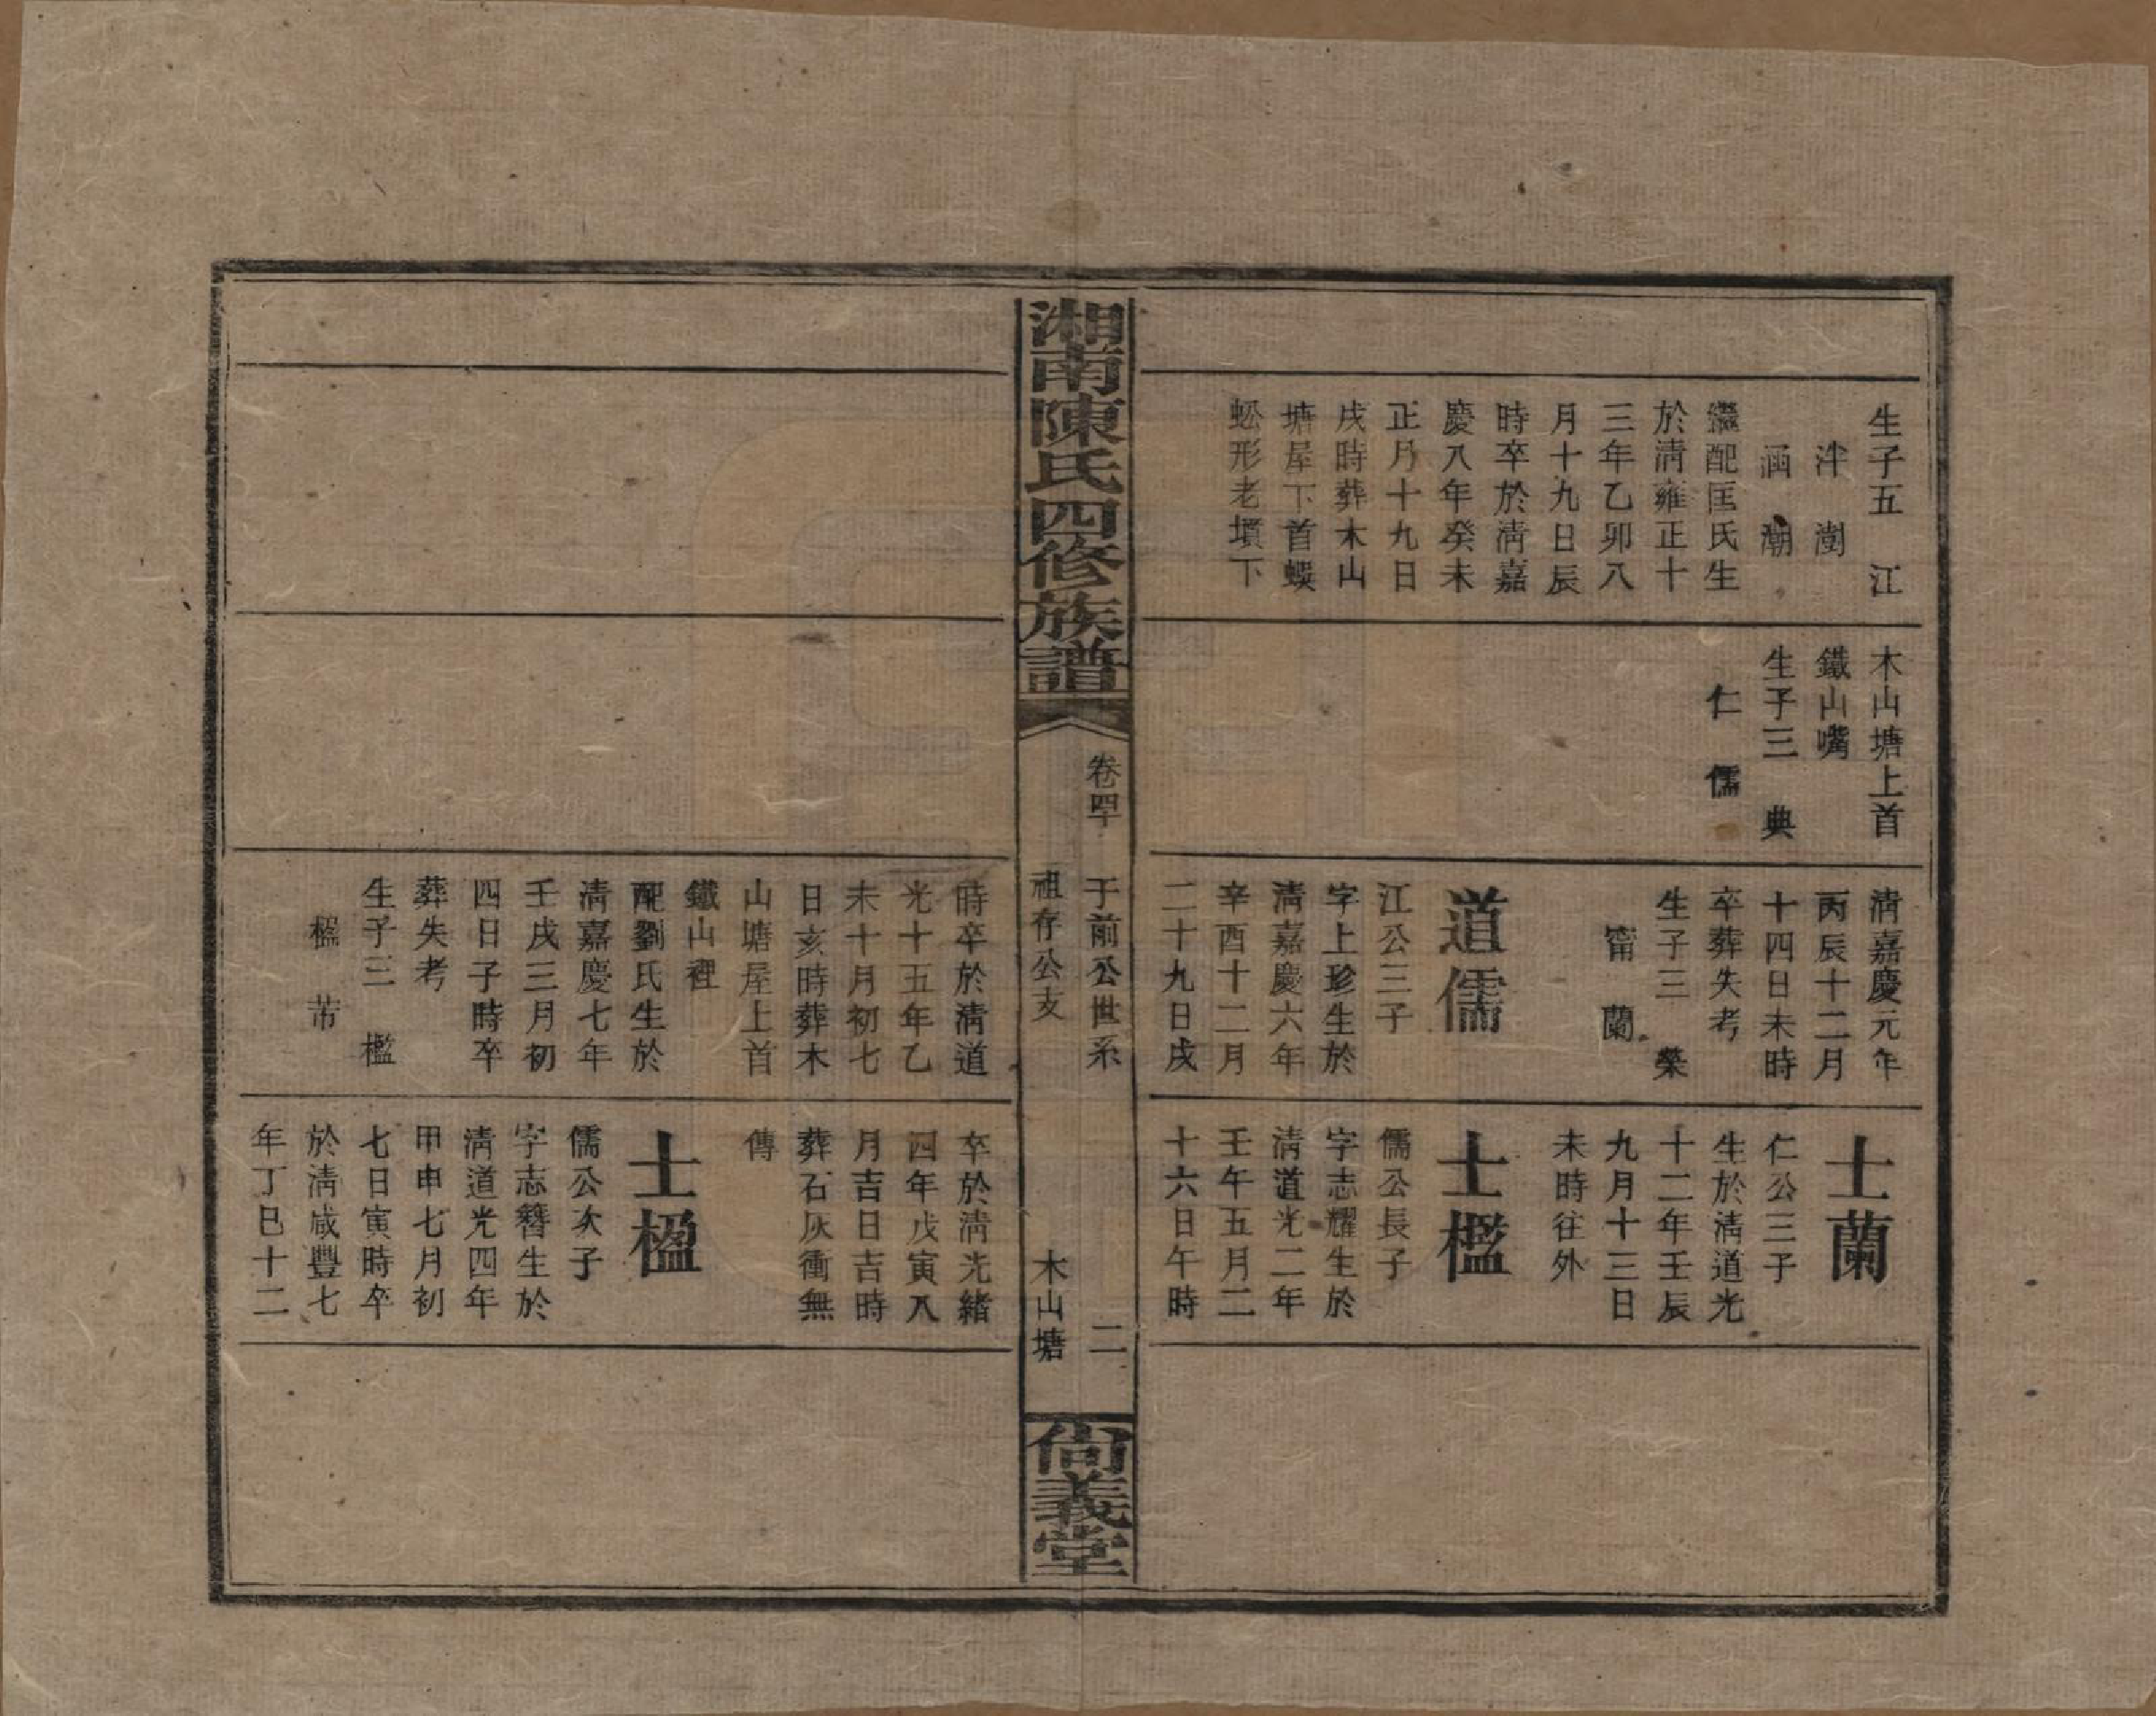 生子五　江
泮　澍
涵　潮
繼配匡氏生
於清雍正十
三年乙卯八
月十九日辰
時卒於清嘉
慶八年癸未
正月十九日
戌時葬木山
塘屋下首蝦
蚣形老墳下
木山塘上首
鐵山嘴
生子三　典
仁　儒
清嘉慶元年
丙辰十二月
十四日未時
卒葬失考
生子三　榮
甯　蘭
道儒
江公三子
字上珍生於
清嘉慶六年
辛酉十二月
二十九日戌
士蘭
仁公三子
生於清道光
十二年壬辰
九月十三日
未時往外
士檻
儒公長子
字志耀生於
清道光二年
壬午五月二
十六日午時
湘南陳氏四修族譜
卷四十
于前公世系
祖存公支
二
木山塘
尙義堂
時卒於清道
光十五年乙
未十月初七
日亥時葬木
山塘屋上首
鐵山裡
配劉氏生於
清嘉慶七年
壬戌三月初
四日子時卒
葬失考
生子三　檻
楹　芾
卒於清光緒
四年戊寅八
月吉日吉時
葬石灰衝無
傳
士楹
儒公次子
字志簪生於
清道光四年
甲申七月初
七日寅時卒
於清咸豐七
年丁巳十二